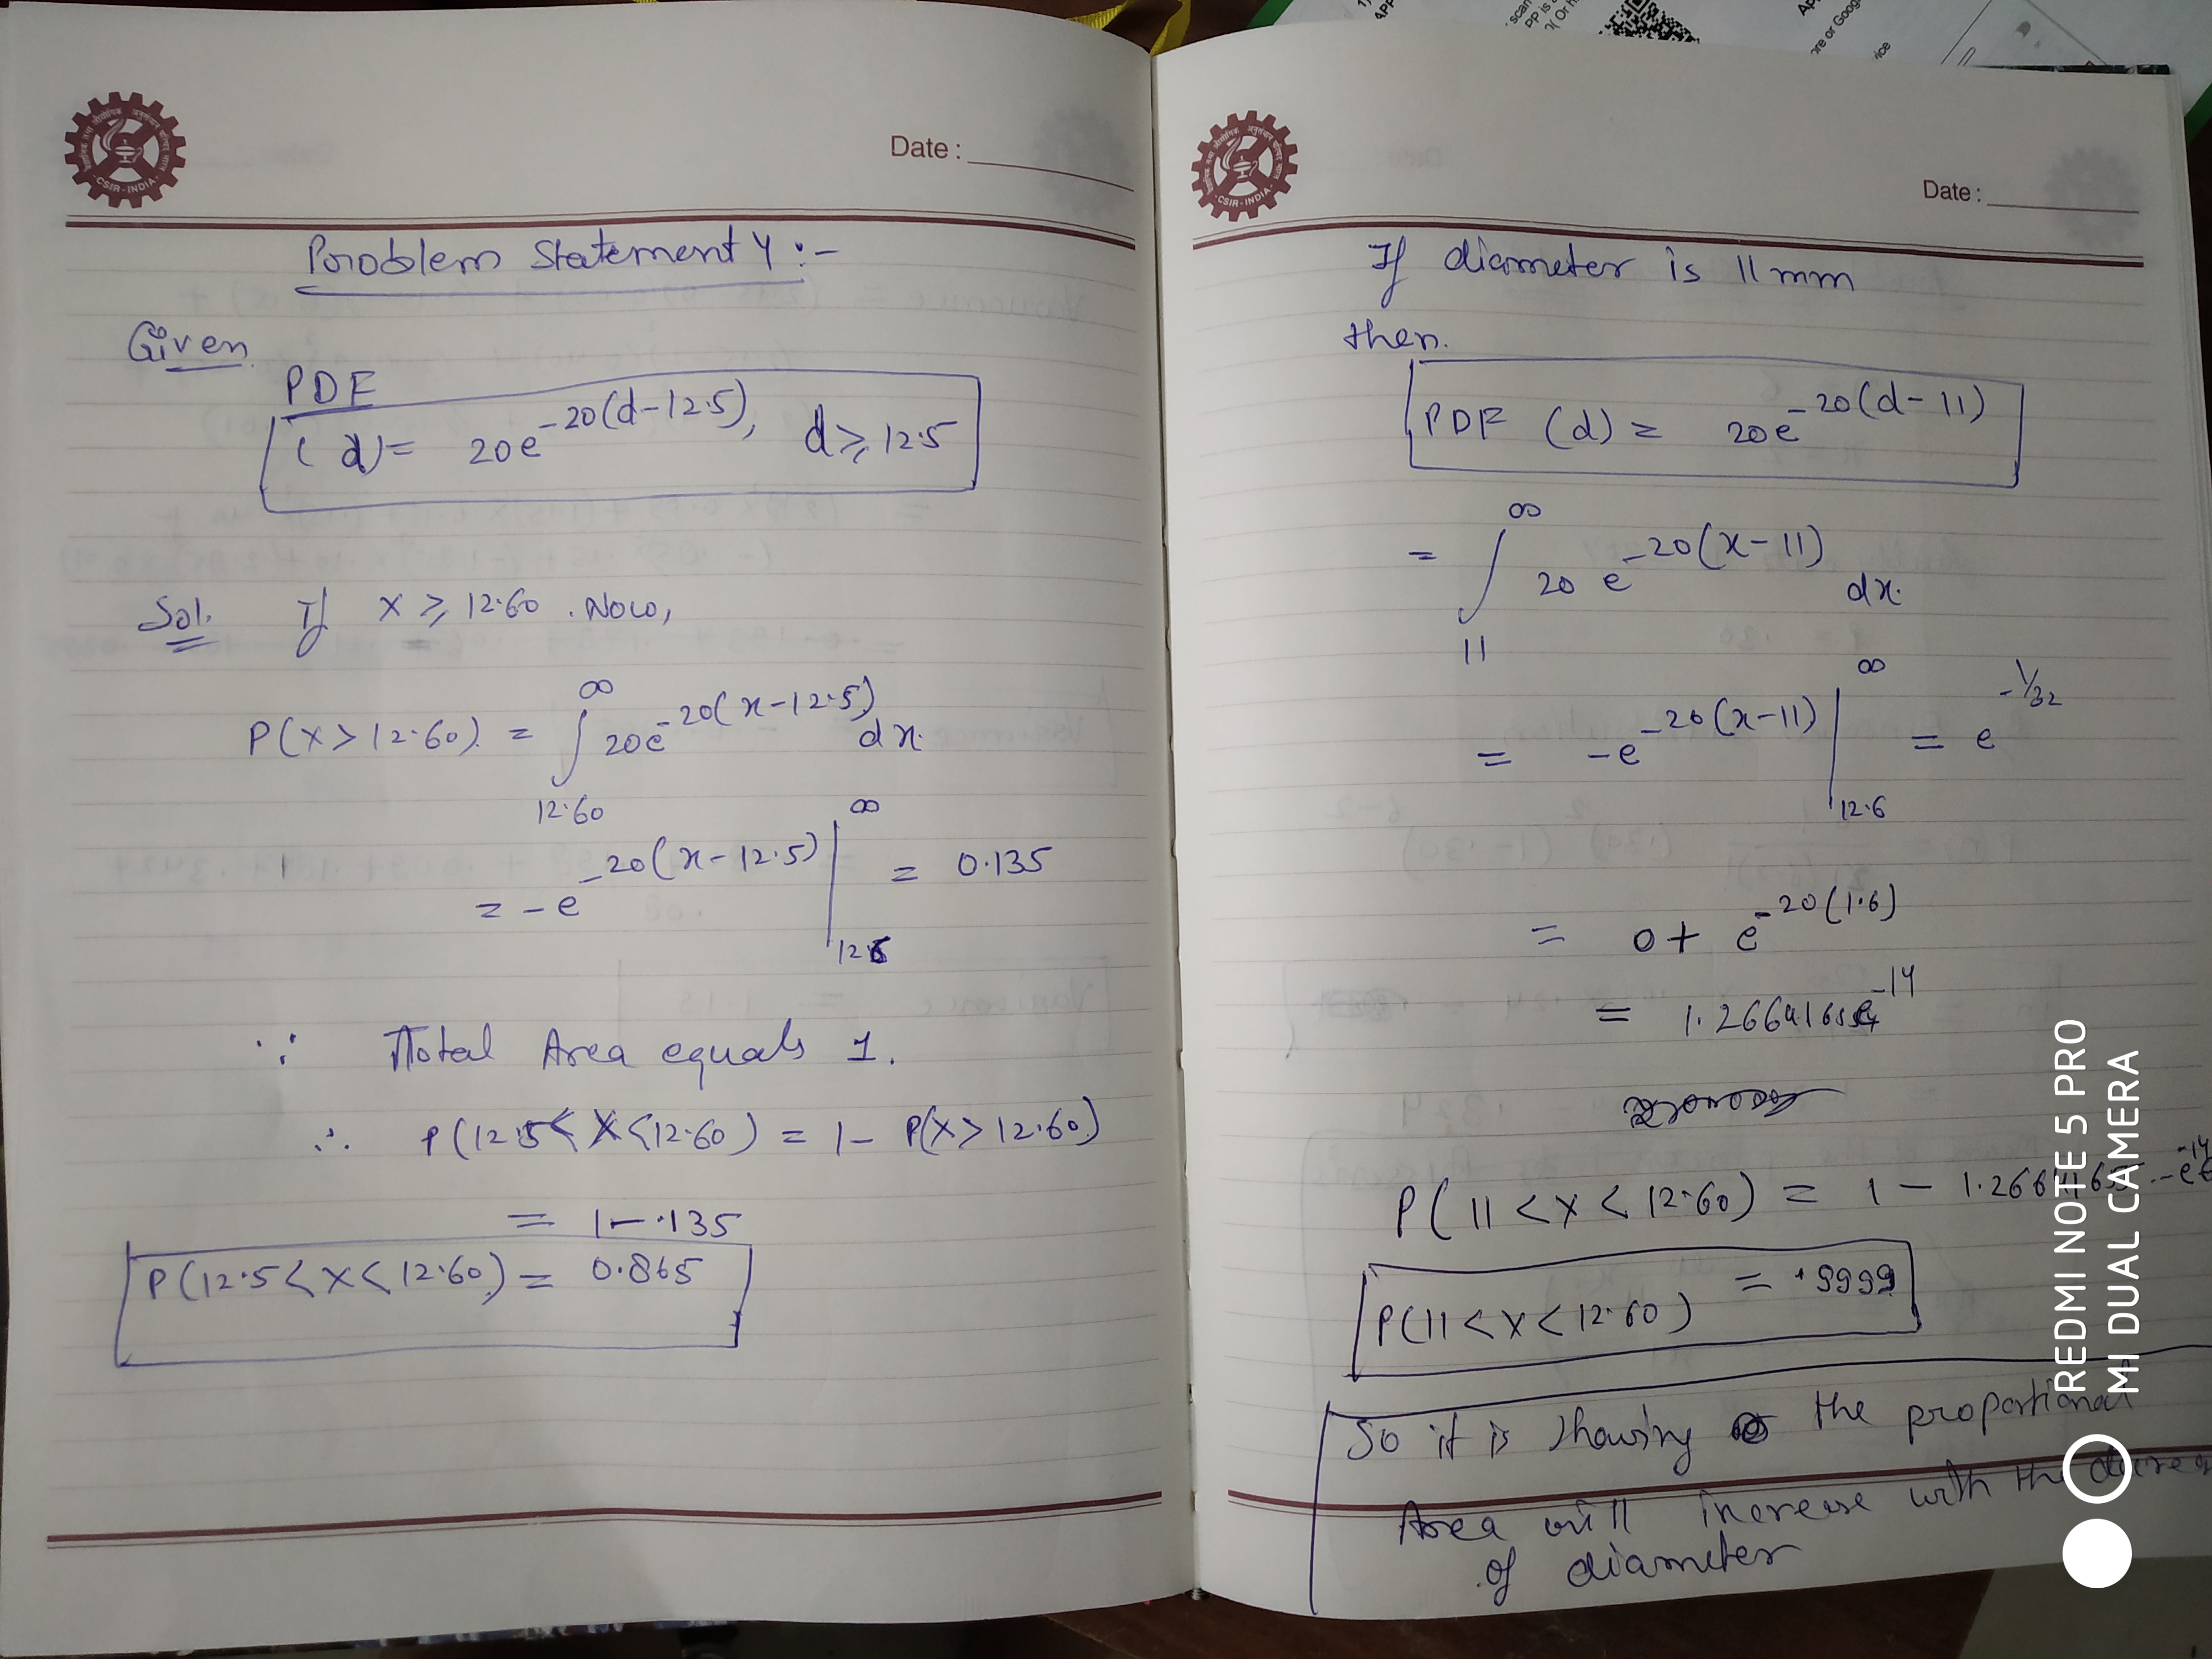 Date :
Problem Statement 4 :-
Given
PDF
(d) = 20e^-20(d-12.5), d ≥ 12.5
Sol. If x ≥ 12.60. Now,
P(x > 12.60) = ∫ 12.60 ∞ 20e^-20(x-12.5) dx.
= -e^-20(x-12.5) | ∞ = 0.135
∵ Total Area equals 1.
∴ P(12.5 < X < 12.60) = 1 - P(x > 12.60)
= 1 - .135
P(12.5 < x < 12.60) = 0.865
Date :
If diameter is 11 mm
then.
PDF (d) = 20e^-20(d-11)
= ∫ 11 ∞ 20 e^-20(x-11) dx.
= -e^-20(x-11) | 12.6 ∞ = e^-1/32
= 0 + e^-20(1.6)
= 1.266416 -14
P(11 < x < 12.60) = 1 - 1.266416 -14
P(11 < x < 12.60) = .9999
So it is showing the proportional
Area will increase with the
of diameter
CSIR-INDIA
CSIR-INDIA
REDMI NOTE 5 PRO
MI DUAL CAMERA